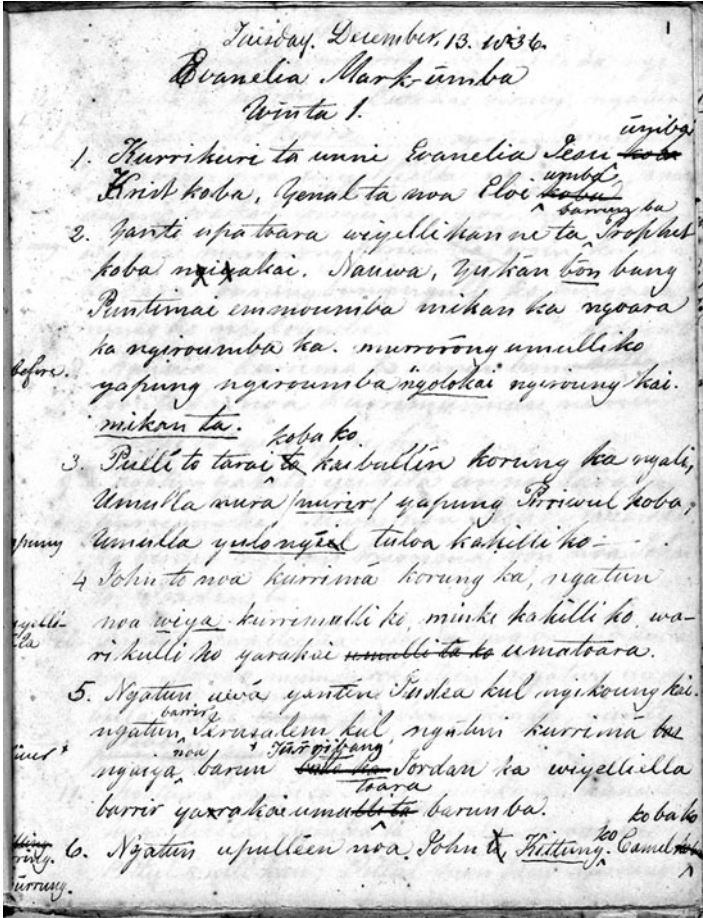 1
Tuesday. December, 13. 1836.
Evanelia Mark-ūmba
Winta 1.
1. Kurrikuri ta unni Evanelia Jesu koba ūmba
Krist koba, Yenal ta noa Eloi koba umba
2. Yanti upatoara wiyellikanne ta Prophet barring ba
koba ngiyakai. Nauwa, Yukān bōn bang
Puntimai emmoumba mikān ka ngoara
ka ngiroumba ka. murrorōng umulliko
before. yapung ngiroumba ngolokai ngiroung kai.
mikan ta.
3. Pulli to tarai ta koba ko kaibullīn korung ka ngali,
Umulla nurā /nurur/ yapung Pirriwul koba,
Umulla yulongeel tuloa kakilli ko—
4 John to noa kurrimā korung ka, ngatun
noa weya kurrimulli ko, minki kakilli ko, wa-
ri kulli ko yarakai umulli ta ko umatoara.
5. Ngatun uwā yantīn Judea kul ngikoung kai.
ngatun, Jerusalem kul, ngatun kurrimā barrir
ngaiya noa barun Jordan ka wiyelliella
barrir yarakai umulli ta toara barumba.
6. Ngatun upulleen noa John Kittung ko Camel koba ko